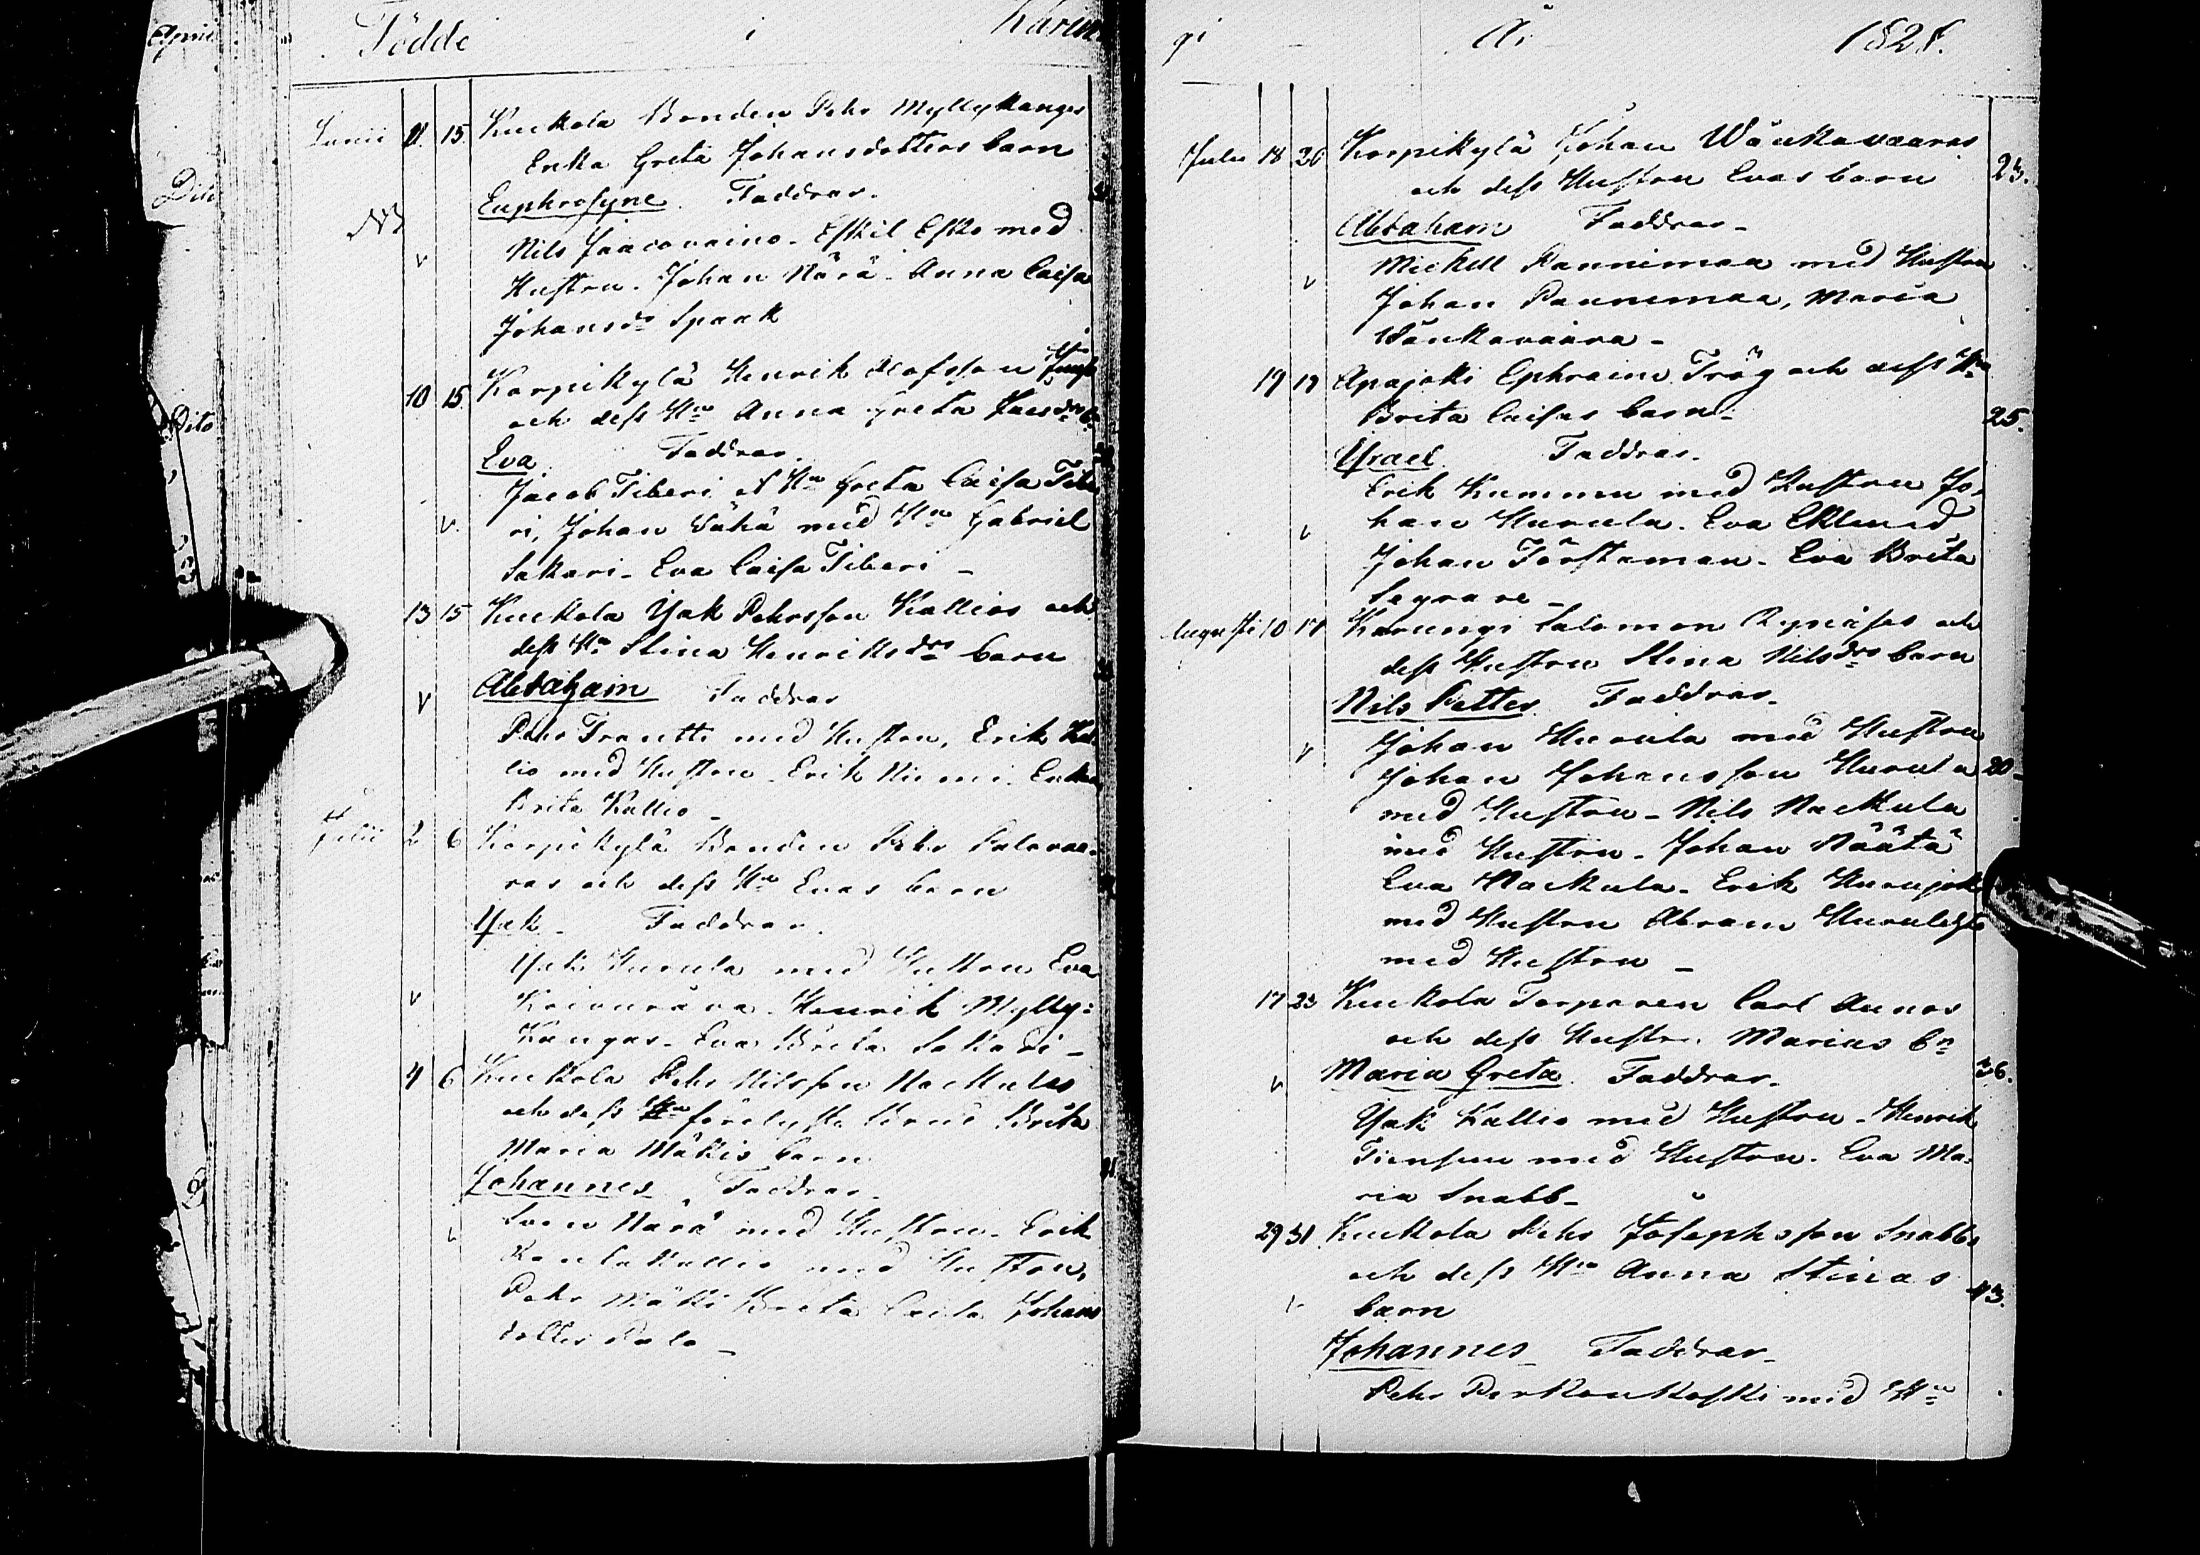 Födde i Karun
Junii 11. 15. Kuckola Bonden Pehr Myllykangas
Erika Greta Johansdotters barn
Euphrosyne. Faddrar.
NB
v Nils Jaacovaino. Eskil Esko med
Hustru. Johan Närä. Anna Caisa
Johansdr Spaak
10 15. Korpikylä Henrik Olofsson
och dess Hu Anna Greta
Eva. Faddrar.
Jacob Tiberi et Hu Greta Caisa Tibe
v. ri, Johan med Hu Gabriel
Sakari. Eva Caisa Tiberi
13 15 Kuckola Isak Pehrsson Kallios och
dess Hu Stina Henriksdrs barn
v Abraham Faddrar
Pehr med Hustru, Erik Kal
lio med Hustru. Erik Niemi.
Brita Kallio
Julii 2 6 Korpikylä Bonden Pehr Palovaa-
ras och dess Hu Evas barn
Isak. Faddrar.
Isak Hurula med Hustru Eva
v Henrik Mylly-
Kangas. Eva Brita Sakari
4 6 Kuckola Pehr Nilsson Nackulas
och dess förelysta Brud Brita
Maria Mäkis barn
Johannes. Faddrar.
v Sven Närä med Hustru. Erik
med Hustru,
Pehr Mäki Brita Johans
dotter Palo
gi År 1828.
Julii 18 20 Korpikylä Johan Wänkavaaras
och dess Hustru Evas barn 23.
Abraham Faddrar
Michell Pannimaa med Hustru
v Johan Pannimaa, Maria
Wänkavaara
19 19 Apajoki Ephraim Trög och dess Hu
Brita Caisas barn 25.
Israel. Faddrar.
Erik Kummu med Hustru Jo-
v han Hurula. Eva Eklund
Johan Förstaman. Eva Brita

Augusti 10 17 Karungi Salomon och
dess Hustru Stina Nilsdrs barn
Nils Petter. Faddrar.
v Johan Hurula med Hustru
Johan Johansson Hurula 30
med Hustru. Nils Nackula
med Hustru. Johan Näätä
Eva Nackula. Erik
med Hustru Abram
med Hustru
17 23 Kuckola Torparen Carl Aunos
och dess Hustru Marias bn
v Maria Greta. Faddrar. 36.
Isak Kallio med Hustru. Henrik
med Hustru. Eva Ma-
ria Snabb
29 31. Kuckola Pehr Josephsson Snabbs
och dess Hu Anna Stinas
v barn 43.
Johannes. Faddrar.
Pehr med Hu